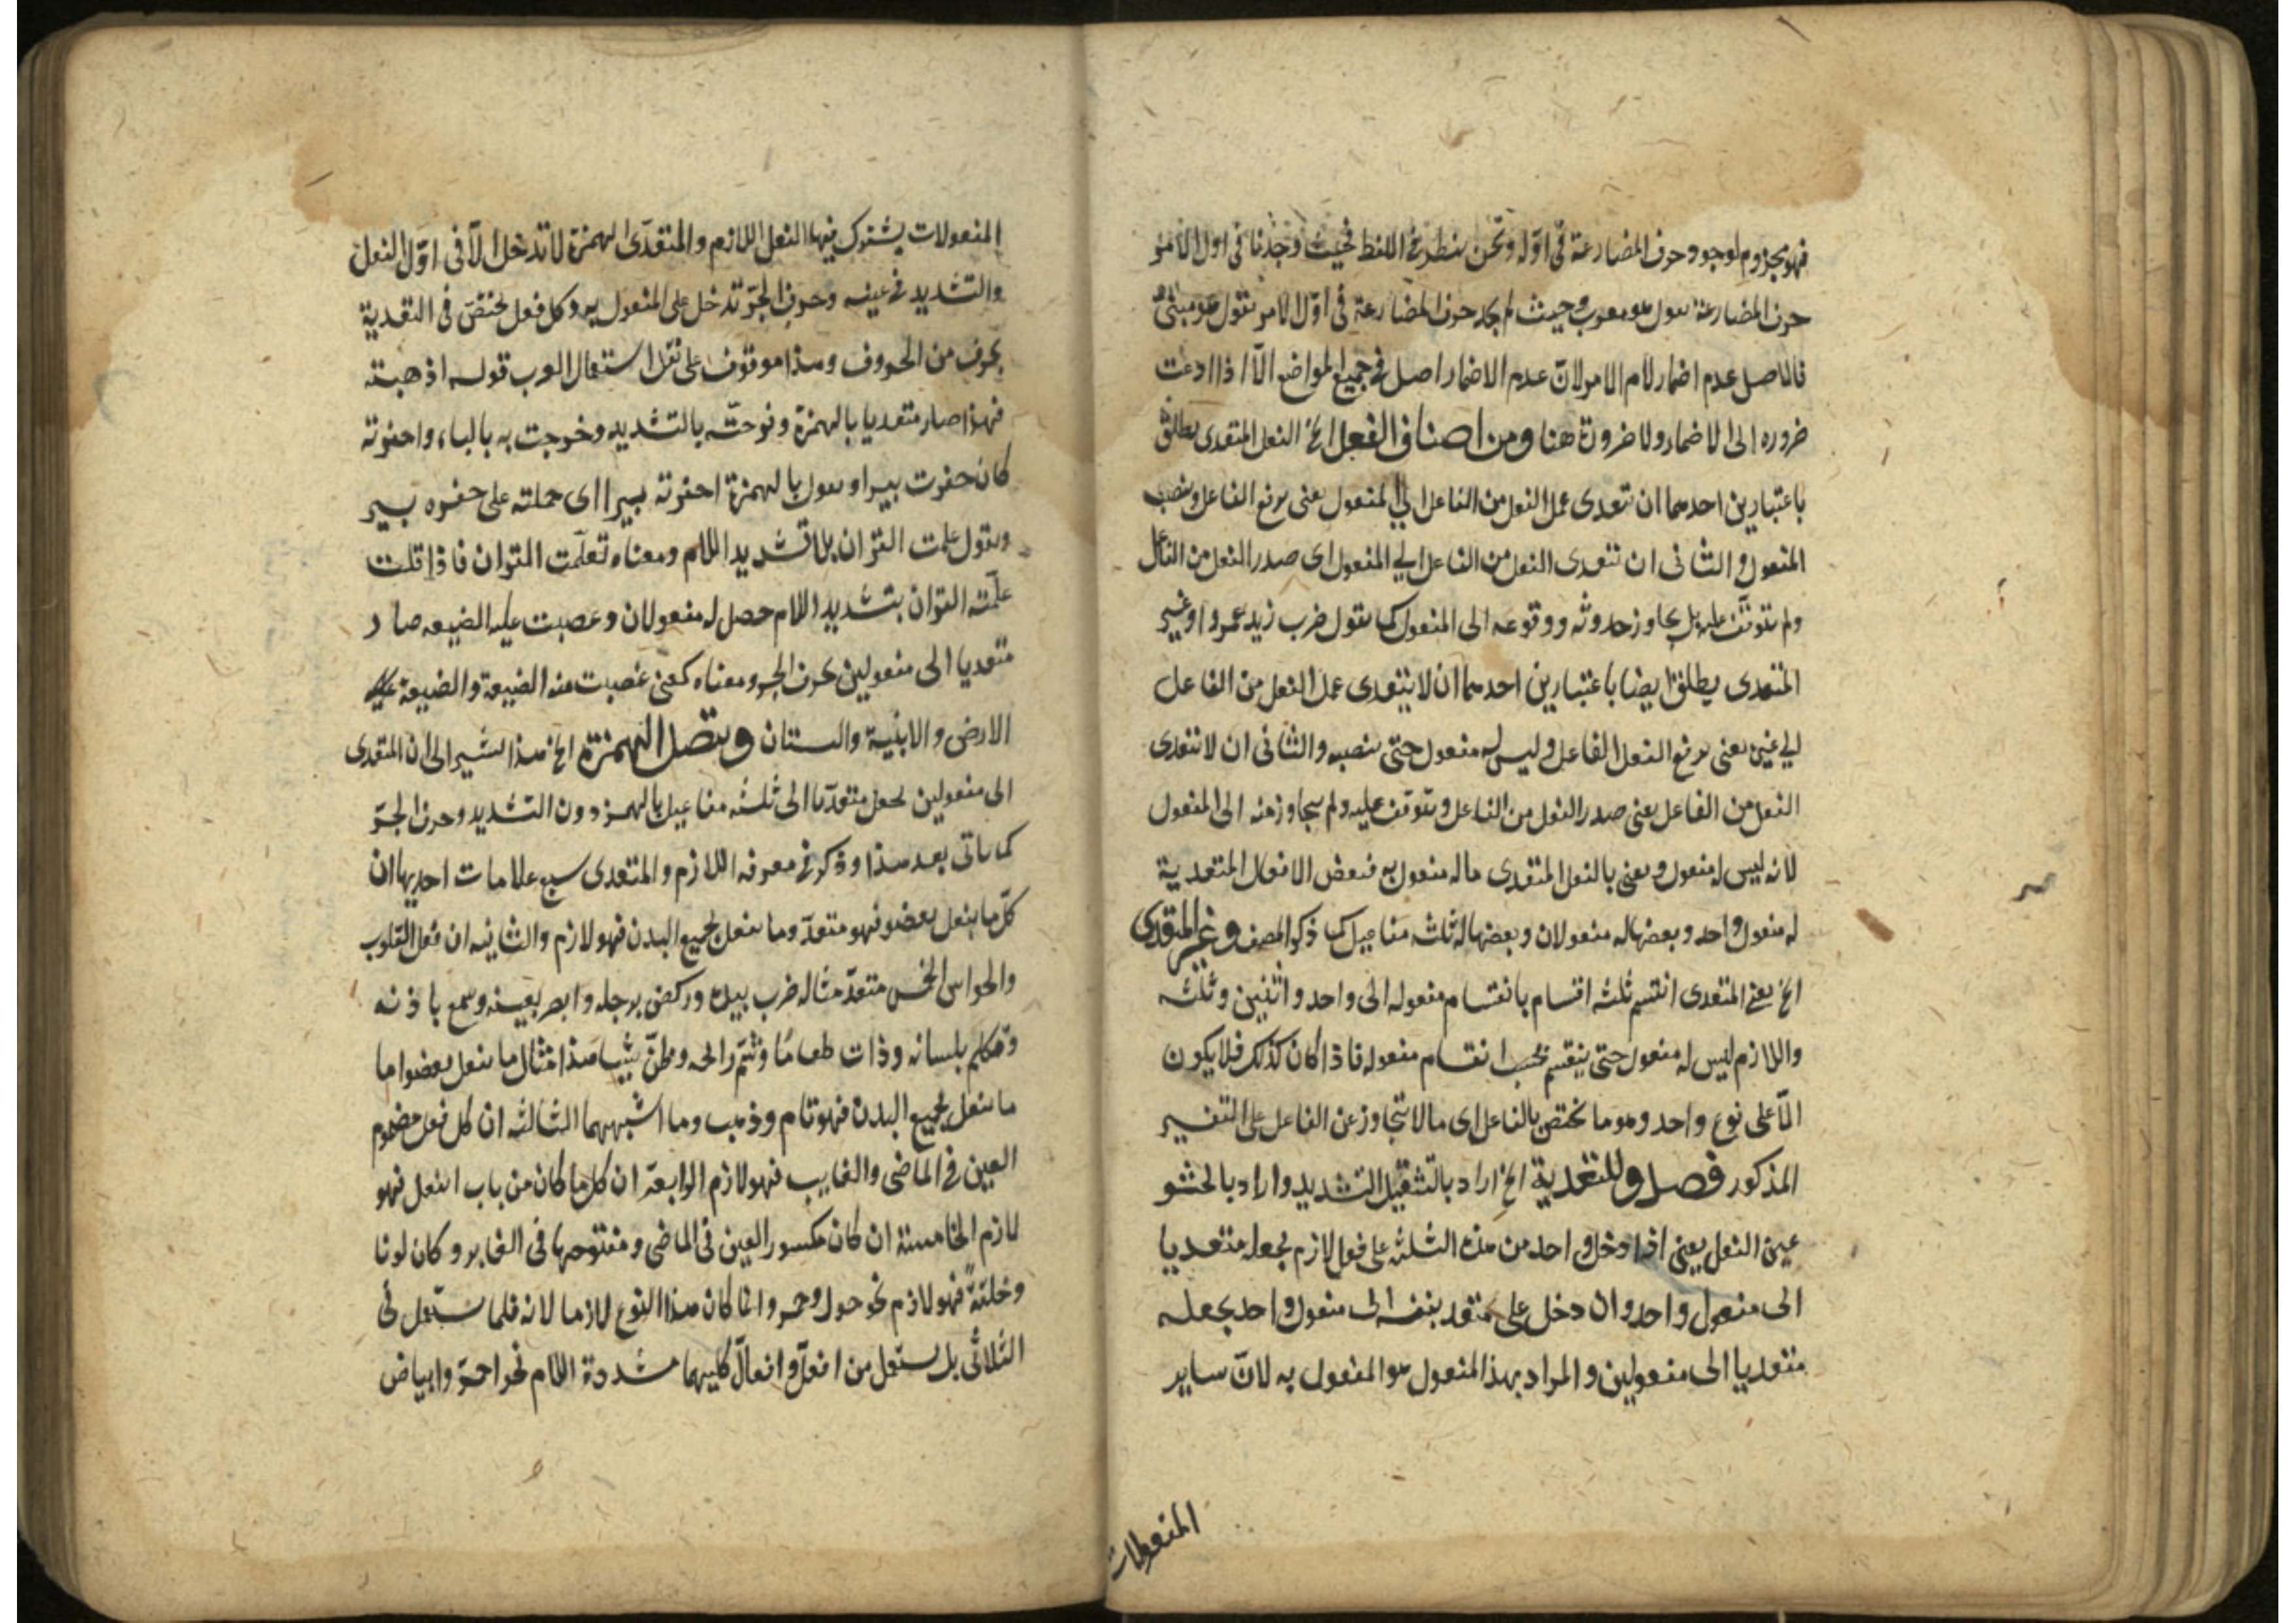 فهو مجزوم لوجود حرف المضارعة فى اوّله ونحن ننظر فى اللفظ فحيث وجدنا فى اول الامر
حرف المضارعة نقول هو معرب وحيث لم نجد حرف المضارعة فى اوّل الامر نقول هو مبنىٌ
فالاصل عدم اضمار لام الامر لانّ عدم الاضمار اصل فى جميع المواضع الّا اذا ادعت
ضروره الى الاضمار ولا ضرورة هنا ومن اصناف الفعل الخ الفعل المتعدى يطلق
باعتبارين احدهما ان تتعدى عمل الفعل من الفاعل الى المفعول يعنى يرفع الفاعل وينصب
المفعول والثانى ان تتعدى الفعل من الفاعل الى المفعول اى صدر الفعل من الفاعل
ولم يتوقف عليه بل يجاوز حدوثه ووقوعه الى المفعول كما تقول ضرب زيد عمروا وغير
المتعدى يطلق ايضا باعتبارين احدهما ان لا يتعدى عمل الفعل من الفاعل
الى غيره يعنى يرفع الفعل الفاعل وليس له مفعول حتى ينصبه والثانى ان لا تتعدى
الفعل من الفاعل يعنى صدر الفعل من الفاعل ويتوقف عليه ولم يتجاوز عنه الى المفعول
لانه ليس له مفعول ويعنى بالفعل المتعدى ماله مفعول به فبعض الافعال المتعدية
له مفعول واحد وبعضها له مفعولان وبعضها له ثلثه مفاعيل كما ذكر المصنف وغير المتعدى
الخ يعنى المتعدى انقسم ثلثه اقسام بانقسام مفعوله الى واحد واثنين وثلثه
واللازم ليس له مفعول حتى ينقسم بحسب انقسام مفعوله فاذا كان كذلك فلا يكون
الّا على نوع واحد وهو ما يختص بالفاعل اى مالا يتجاوز عن الفاعل على التفسير
المذكور فصل وللتعدية الخ اراد بالتثقيل التشديد واراد بالحشو
عين الفعل يعنى اذا دخل واحد من هذه الثلثه على فعل لازم يجعله متعديا
الى مفعول واحد وان دخل على متعد بنفسه الى مفعول واحد يجعله
متعديا الى مفعولين والمراد بهذا المفعول هو المفعول به لانّ ساير
المفعولات
المفعولات يشترك فيها الفعل اللازم والمتعدّى الهمزة لا تدخل الّا فى اوّل الفعل
والتشديد فى عينه وحرف الجرّ تدخل على المفعول به وكل فعل يختصّ فى التعدية
بحرف من الحروف وهذا موقوف على نقل استعمال العرب قوله اذهبته
فهذا صار متعديا بالهمزة وفرحته بالتشديد وخرجت به بالباء واحفرته
كان حفرت بيرا وتقول بالهمزة احفرته بيرا اى حملته على حفره بير
وتقول علمت القران بلا تشديد اللام ومعناه تعلّمت القران فاذا قلت
علّمته القران بتشديد اللام حصل له مفعولان وغصبت عليه الضيعه صار
متعديا الى مفعولين بحرف الجر ومعناه كمعنى غصبت منه الضيعة والضيعة
الارض والابنية والبستان وتتصل الهمزة الخ هذا يشير الى ان المتعدى
الى مفعولين يجعل متعديا الى ثلثه مفاعيل بالهمزه دون التشديد وحرف الجرّ
كما ياتى بعد هذا وذكر فى معرفه اللازم والمتعدى سبع علامات احديها ان
كلّ ما يفعل بعضو فهو متعدّ وما يفعل بجميع البدن فهو لازم والثانيه ان فعل القلوب
والحواس الخمس متعدّ مثاله ضرب بيده وركض برجله وابصر بعينه وسمع باذنه
وتكلم بلسانه وذاق طعامًا وشمّ رائحه وظنّ شيئا هذا مثال ما يفعل بعضو اما
ما يفعل بجميع البدن فهو قام وذهب وما اشبههما الثالثه ان كل فعل مضموم
العين فى الماضى والغابر فهو لازم الرابعة ان كل ما كان من باب انفعل فهو
لازم الخامسة ان كان مكسور العين فى الماضى ومفتوحها فى الغابر وكان لونا
وخلقةً فهو لازم نحو حول وحمر وانما كان هذا النوع لازما لانه قلما يستعمل فى
الثلاثى بل يستعمل من افعلّ وافعالّ كليهما مشددة اللام نحو احمرّ وابياض